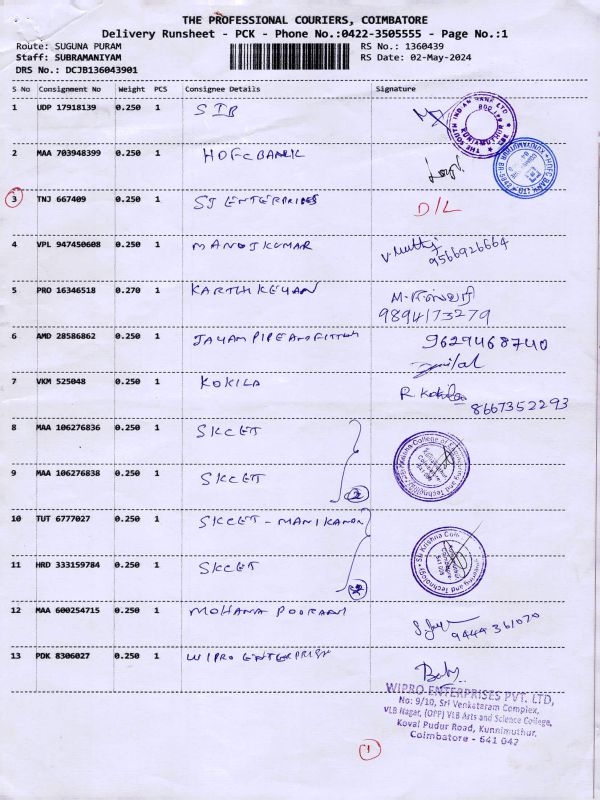 THE PROFESSIONAL COURIERS, COIMBATORE
Delivery Runsheet - PCK - Phone No.:0422-3505555 - Page No.:1
Route: SUGUNA PURAM RS No.: 1360439
Staff: SUBRAMANIYAM RS Date: 02-May-2024
DRS No.: DCJB136043901
S No Consignment No Weight PCS Consignee Details Signature
1 UDP 17918139 0.250 1 SIB
2 MAA 703948399 0.250 1 HDFC BANK
3 TNJ 667409 0.250 1 SJ ENTERPRISES D/L
4 VPL 947450608 0.250 1 MANOJ KUMAR V. Muthu 9566926664
5 PRO 16346518 0.270 1 KARTHIKEYAN
9894173279
6 AMD 28586862 0.250 1 JAYAM PIPE AND FITTING 9629468740
7 VKM 525048 0.250 1 KOKILA R. Kokila 8667352293
8 MAA 106276836 0.250 1 SKCET
9 MAA 106276838 0.250 1 SKCET 2
10 TUT 6777027 0.250 1 SKCET - MANIKANDAN
11 HRD 333159784 0.250 1 SKCET
12 MAA 600254715 0.250 1 MOHANA POORANI
9444361070
13 PDK 8306027 0.250 1 WIPRO ENTERPRISE
WIPRO ENTERPRISES PVT. LTD,
No: 9/10, Sri Venkateram Complex,
VLB Nagar, (OPP) VLB Arts and Science College,
Koval Pudur Road, Kunnimuthur,
Coimbatore - 641 042
1